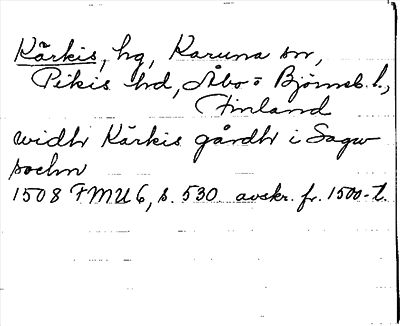 Kärkis, hg, Karuna sn,
Pikis hd, Åbo o Björneb. l.,
Finland
widh Kärkis gårdh i Sagw
sochn
1508 FMU 6, s. 530 avskr. fr. 1500-t.